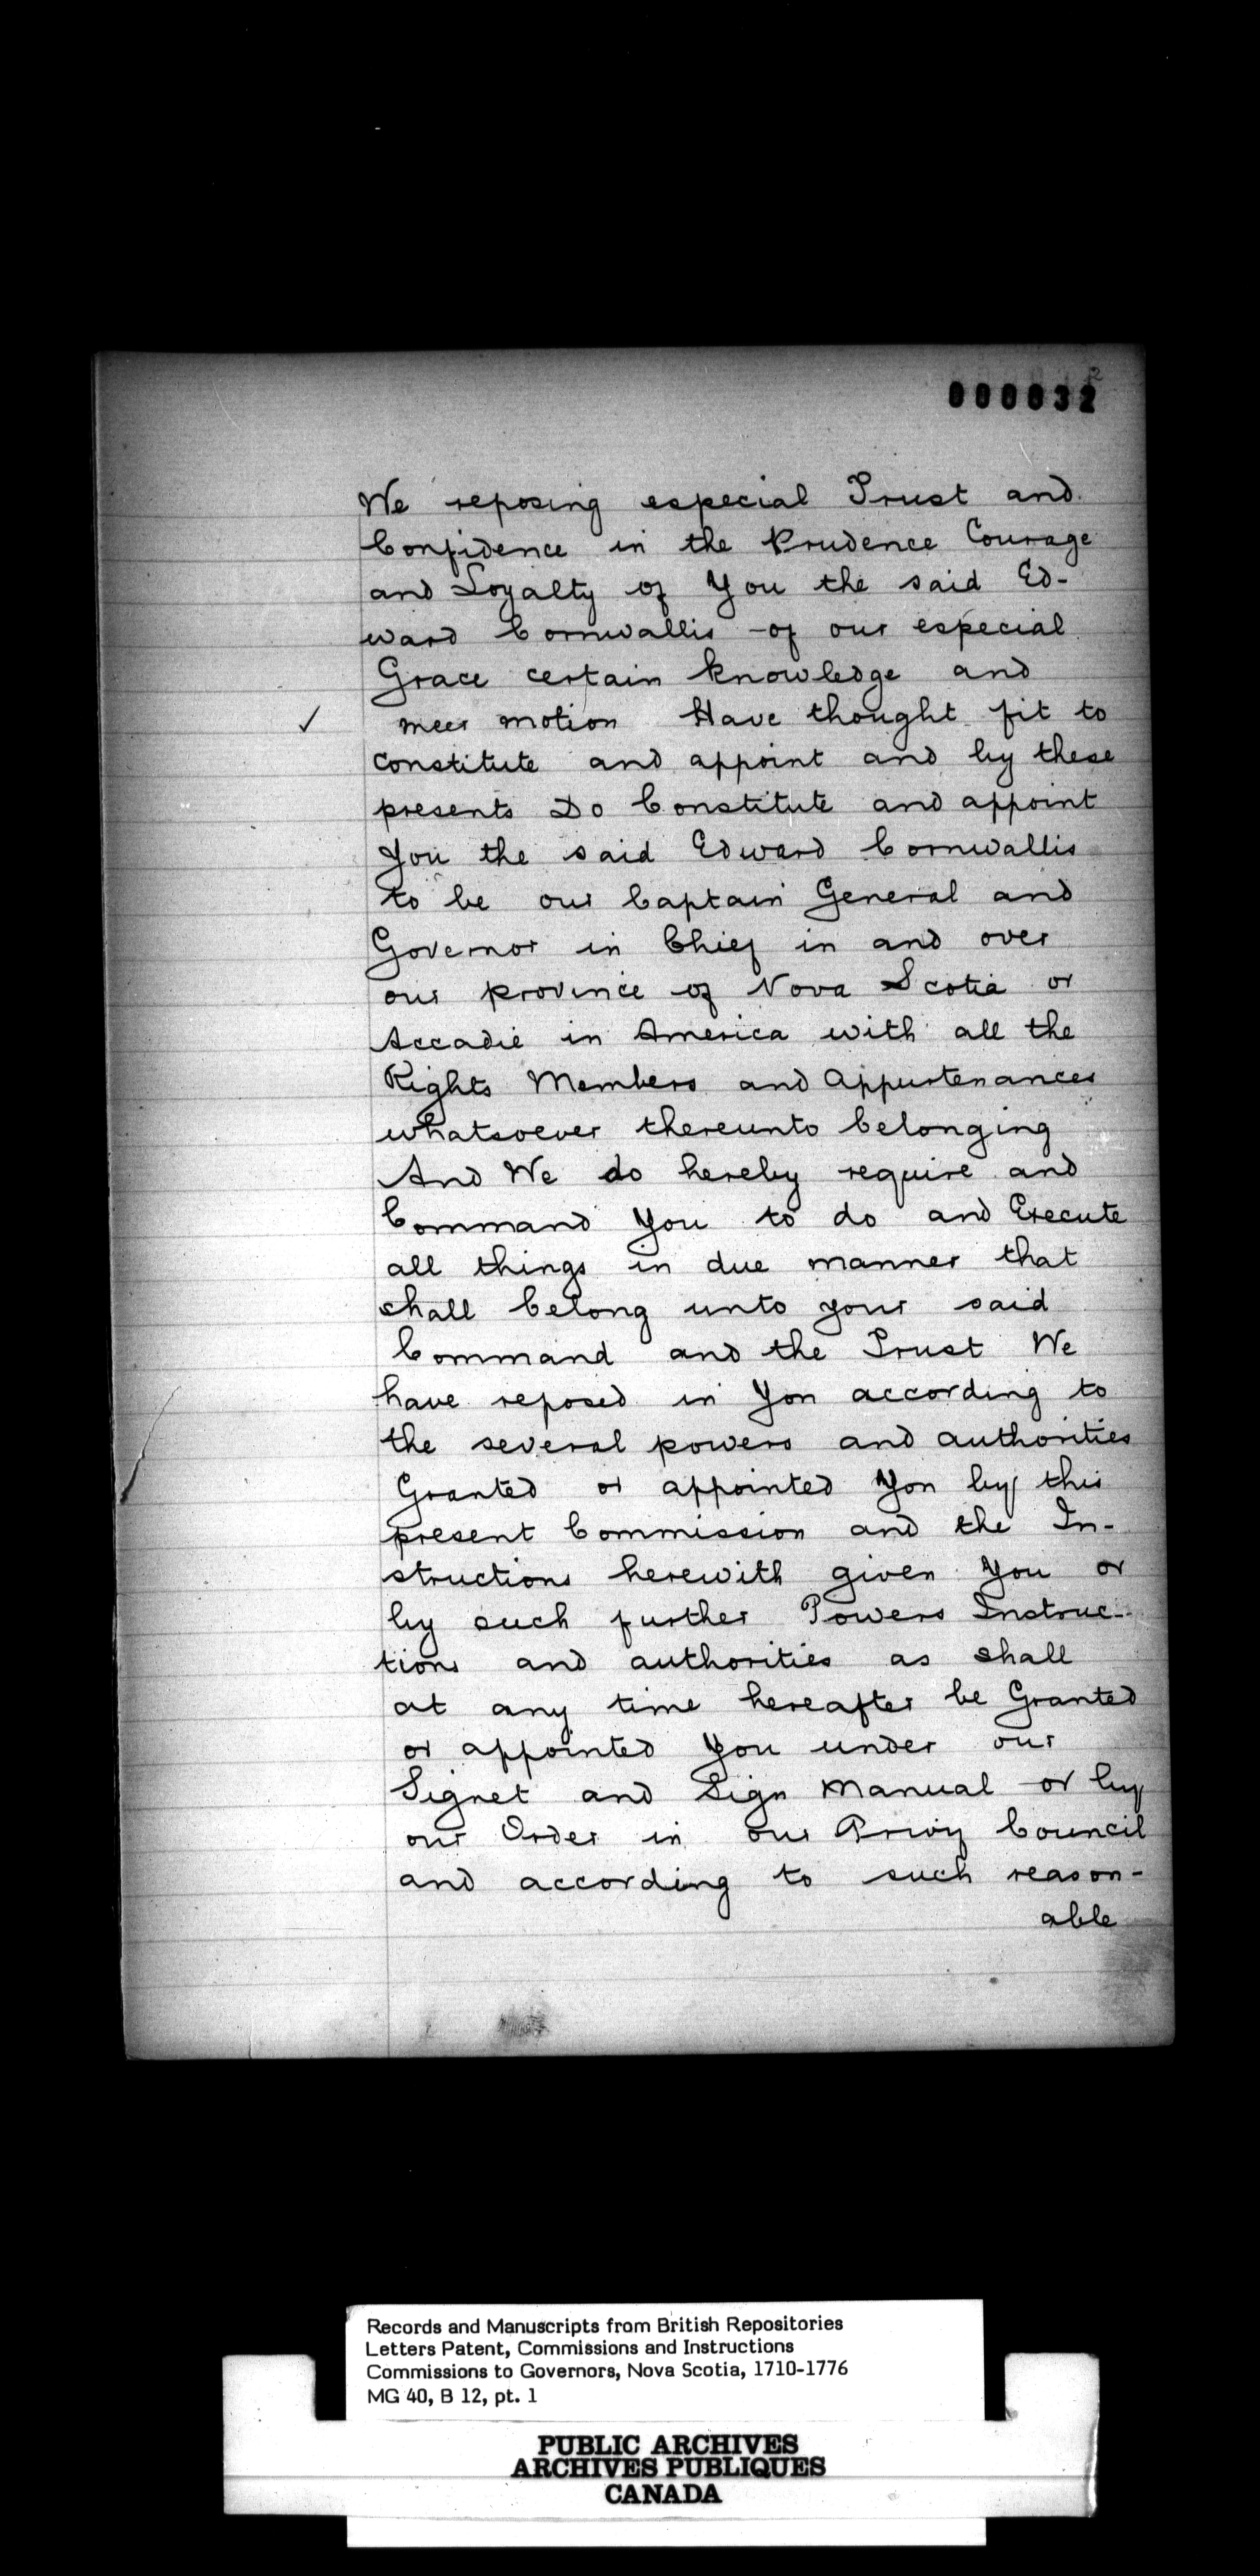 000032
We reposing especial Trust and
Confidence in the Prudence Courage
and Loyalty of You the said Ed-
ward Cornwallis of our especial
Grace certain knowledge and
meer motion Have thought fit to
constitute and appoint and by these
presents Do Constitute and appoint
You the said Edward Cornwallis
to be our Captain General and
Governor in Chief in and over
our province of Nova Scotia or
Accadie in America with all the
Rights Members and Appurtenances
whatsoever thereunto belonging
And We do hereby require and
Command You to do and Execute
all things in due manner that
shall belong unto your said
Command and the Trust We
have reposed in You according to
the several powers and authorities
Granted or appointed You by this
present Commission and the In-
structions herewith given You or
by such further Powers Instruc-
tions and authorities as shall
at any time hereafter be Granted
or appointed You under our
Signet and Sign Manual or by
our Order in our Privy Council
and according to such reason-
able
Records and Manuscripts from British Repositories
Letters Patent, Commissions and Instructions
Commissions to Governors, Nova Scotia, 1710-1776
MG 40, B 12, pt. 1
PUBLIC ARCHIVES
ARCHIVES PUBLIQUES
CANADA